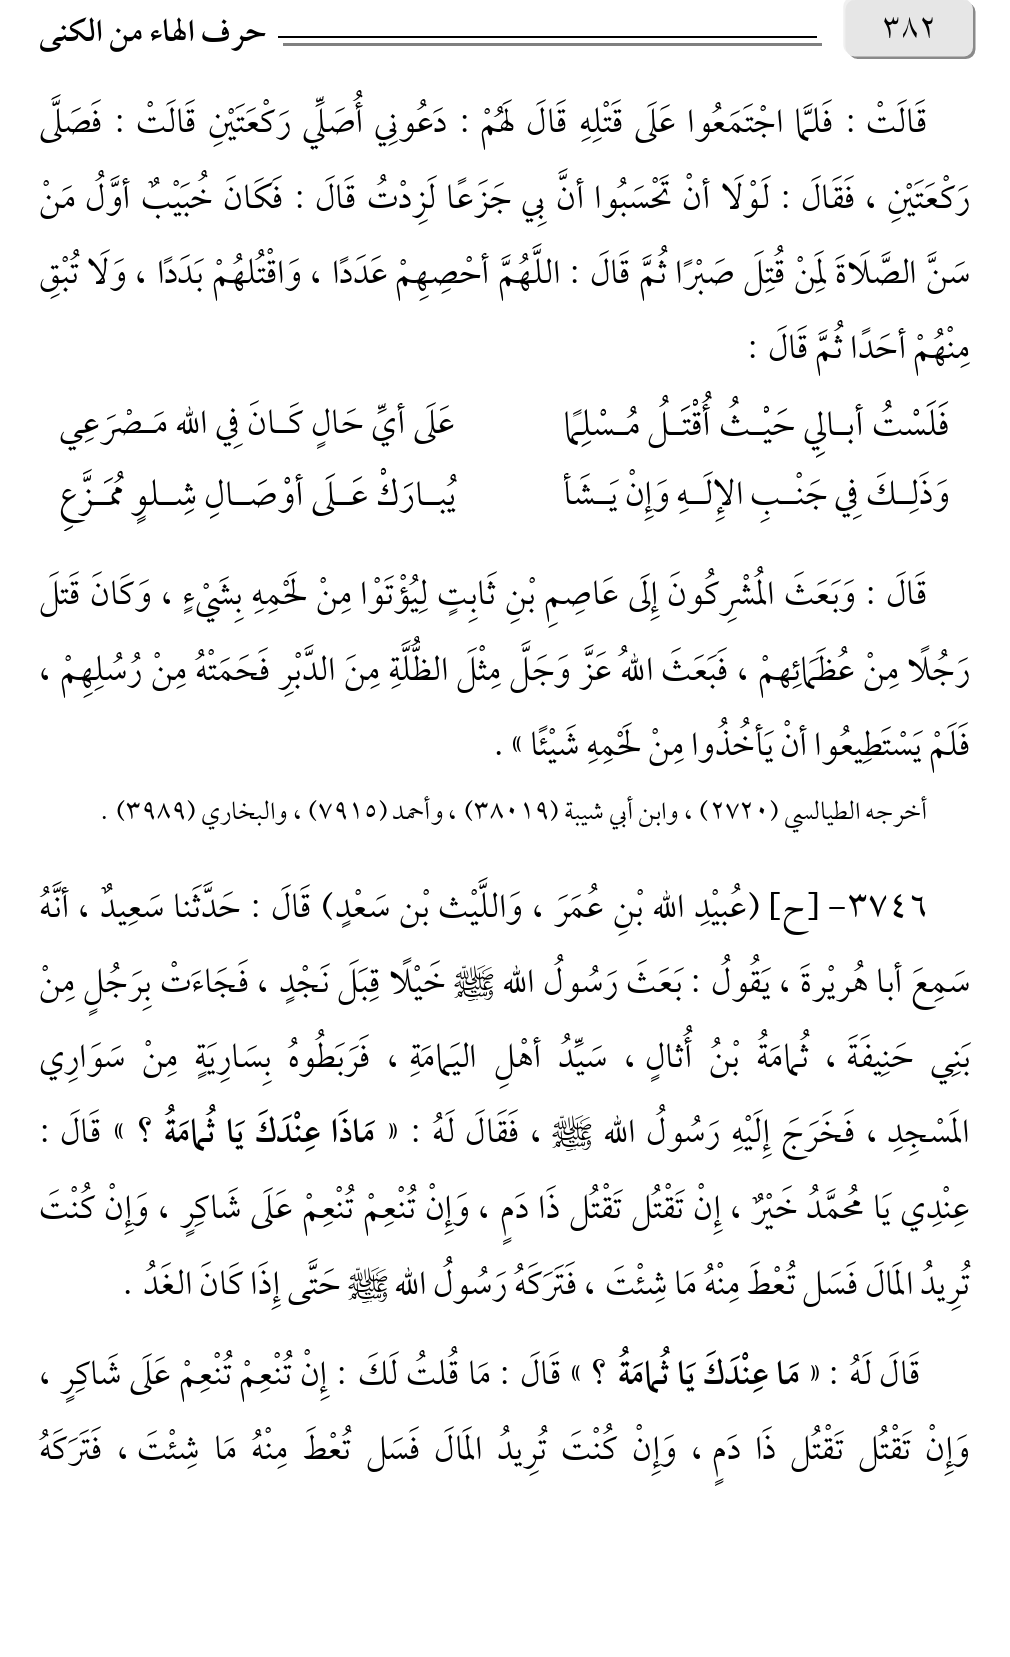 ٣٨٢
حرف الهاء من الكنى
قَالَتْ : فَلمَّا اجْتَمَعُوا عَلَى قَتْلِهِ قَالَ لَهُمْ : دَعُونِي أُصَلِّي رَكْعَتَيْنِ قَالَتْ : فَصَلَّى
رَكْعَتَيْنِ ، فَقَالَ : لَوْلَا أنْ تَحْسَبُوا أنَّ بِي جَزَعًا لَزِدْتُ قَالَ : فَكَانَ خُبَيْبٌ أوَّلُ مَنْ
سَنَّ الصَّلَاةَ لِمَنْ قُتِلَ صَبْرًا ثُمَّ قَالَ : اللَّهُمَّ أحْصِهِمْ عَدَدًا ، وَاقْتُلهُمْ بَدَدًا ، وَلَا تُبْقِ
مِنْهُمْ أحَدًا ثُمَّ قَالَ :
فَلَسْتُ أبـالِي حَيْـثُ أُقْتَـلُ مُـسْلِمًا عَلَى أيِّ حَالٍ كَـانَ فِي الله مَـصْرَعِي
وَذَلِـكَ فِي جَنْـبِ الإِلَـهِ وَإِنْ يَـشَأ يُبـارَكْ عَـلَى أوْصَـالِ شِـلوٍ مُمَـزَّعِ
قَالَ : وَبَعَثَ المُشْرِكُونَ إِلَى عَاصِمِ بْنِ ثَابِتٍ لِيُؤْتَوْا مِنْ لَحْمِهِ بِشَيْءٍ ، وَكَانَ قَتلَ
رَجُلًا مِنْ عُظَمَائِهِمْ ، فَبَعَثَ اللهُ عَزَّ وَجَلَّ مِثْلَ الظُّلَّةِ مِنَ الدَّبْرِ فَحَمَتْهُ مِنْ رُسُلِهِمْ ،
فَلَمْ يَسْتَطِيعُوا أنْ يَأخُذُوا مِنْ لَحْمِهِ شَيْئًا » .
أخرجه الطيالسي (٢٧٢٠) ، وابن أبي شيبة (٣٨٠١٩) ، وأحمد (٧٩١٥) ، والبخاري (٣٩٨٩) .
٣٧٤٦- [ح] (عُبيْدِ الله بْنِ عُمَرَ ، وَاللَّيْث بْن سَعْدٍ) قَالَ : حَدَّثَنا سَعِيدٌ ، أنَّهُ
سَمِعَ أبا هُريْرةَ ، يَقُولُ : بَعَثَ رَسُولُ الله ﷺ خَيْلًا قِبَلَ نَجْدٍ ، فَجَاءَتْ بِرَجُلٍ مِنْ
بَنِي حَنِيفَةَ ، ثُمامَةُ بْنُ أُثالٍ ، سَيِّدُ أهْلِ اليَمامَةِ ، فَرَبَطُوهُ بِسَارِيَةٍ مِنْ سَوَارِي
المَسْجِدِ ، فَخَرَجَ إِلَيْهِ رَسُولُ الله ﷺ ، فَقَالَ لَهُ : « مَاذَا عِنْدَكَ يَا ثُمامَةُ ؟ » قَالَ :
عِنْدِي يَا مُحمَّدُ خَيْرٌ ، إِنْ تَقْتُل تَقْتُل ذَا دَمٍ ، وَإِنْ تُنْعِمْ تُنْعِمْ عَلَى شَاكِرٍ ، وَإِنْ كُنْتَ
تُرِيدُ المَالَ فَسَل تُعْطَ مِنْهُ مَا شِئْتَ ، فَتَرَكَهُ رَسُولُ الله ﷺ حَتَّى إِذَا كَانَ الغَدُ .
قَالَ لَهُ : « مَا عِنْدَكَ يَا ثُمامَةُ ؟ » قَالَ : مَا قُلتُ لَكَ : إِنْ تُنْعِمْ تُنْعِمْ عَلَى شَاكِرٍ ،
وَإِنْ تَقْتُل تَقْتُل ذَا دَمٍ ، وَإِنْ كُنْتَ تُرِيدُ المَالَ فَسَل تُعْطَ مِنْهُ مَا شِئْتَ ، فَتَرَكَهُ